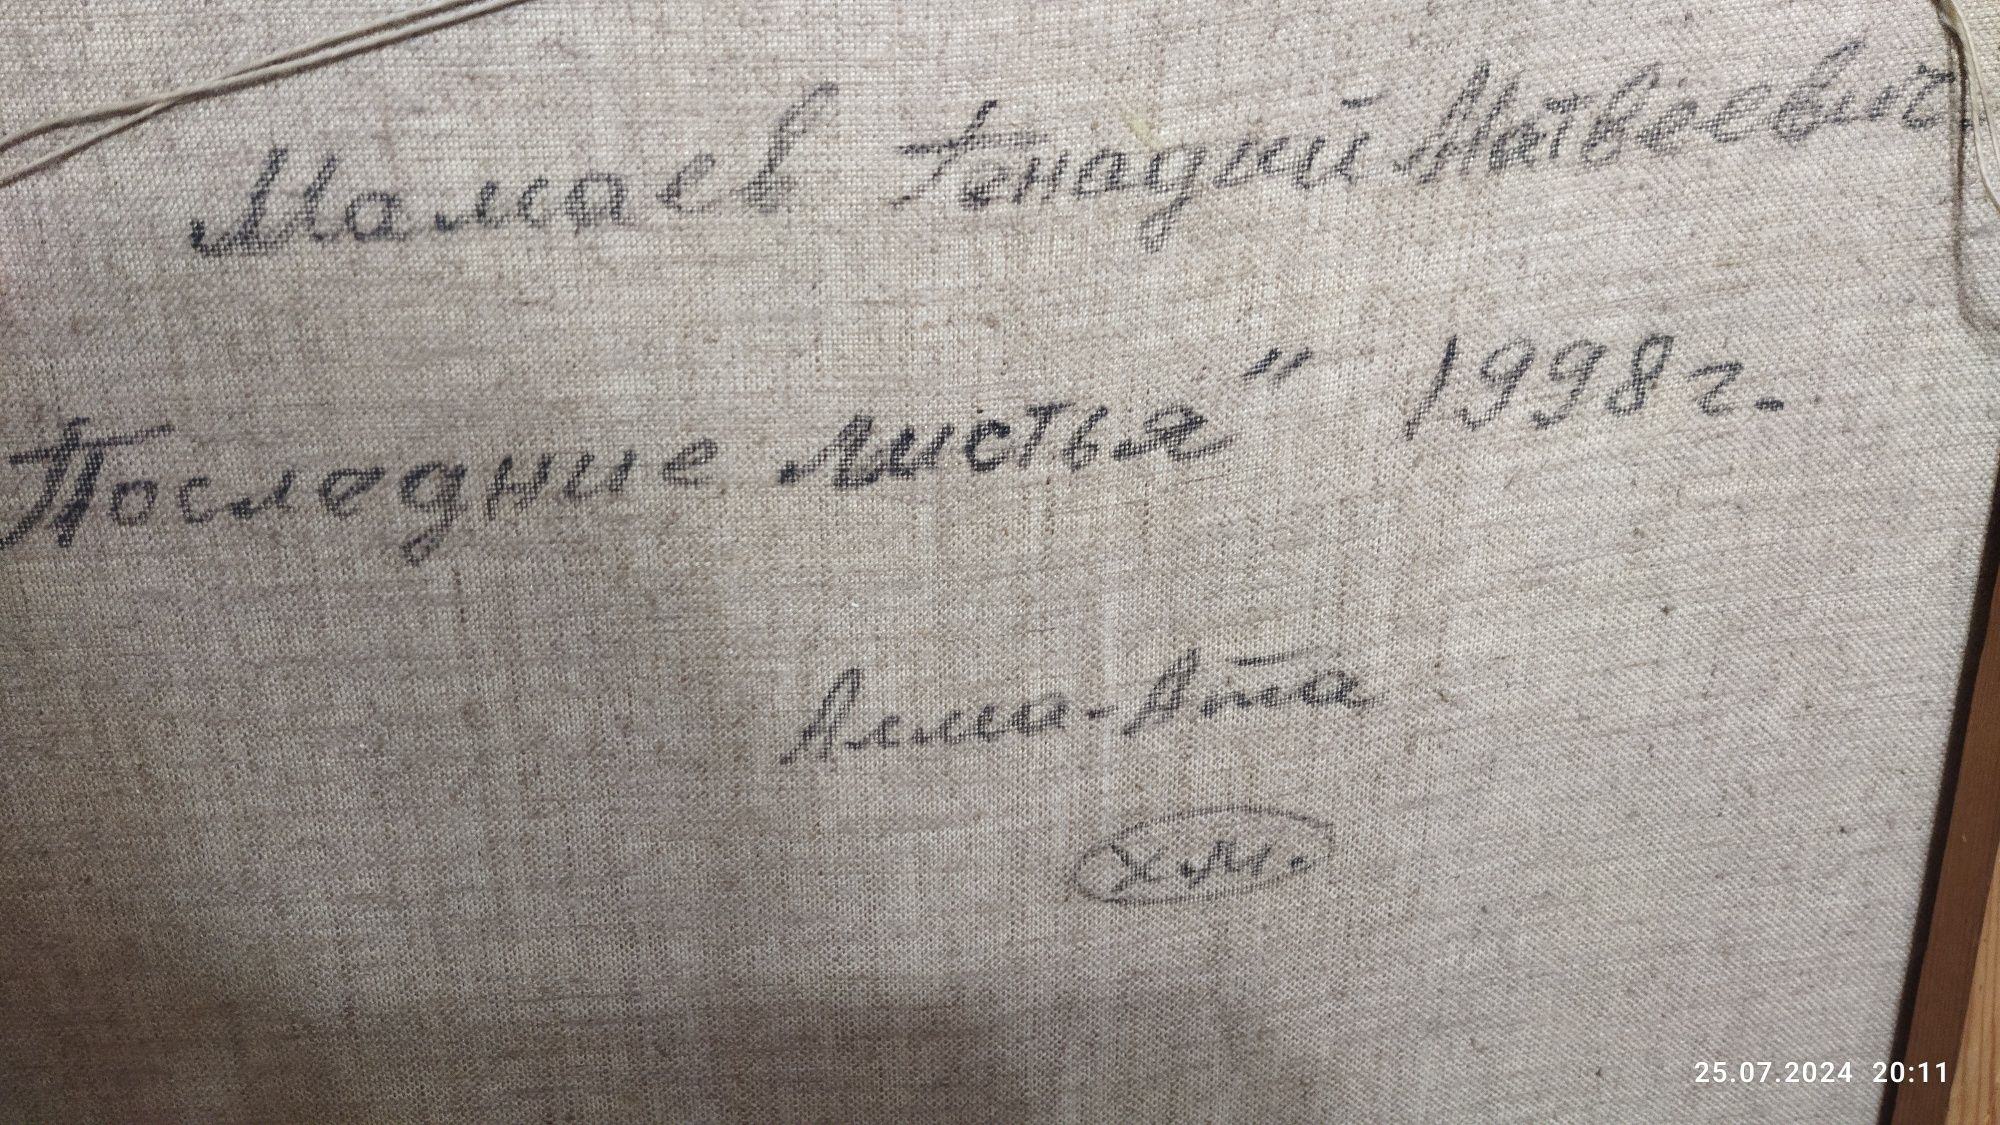 Мамаев Генадий Матвеевич
Последние листья" 1998 г.
Алма-Ата
х.м.
25.07.2024 20:11